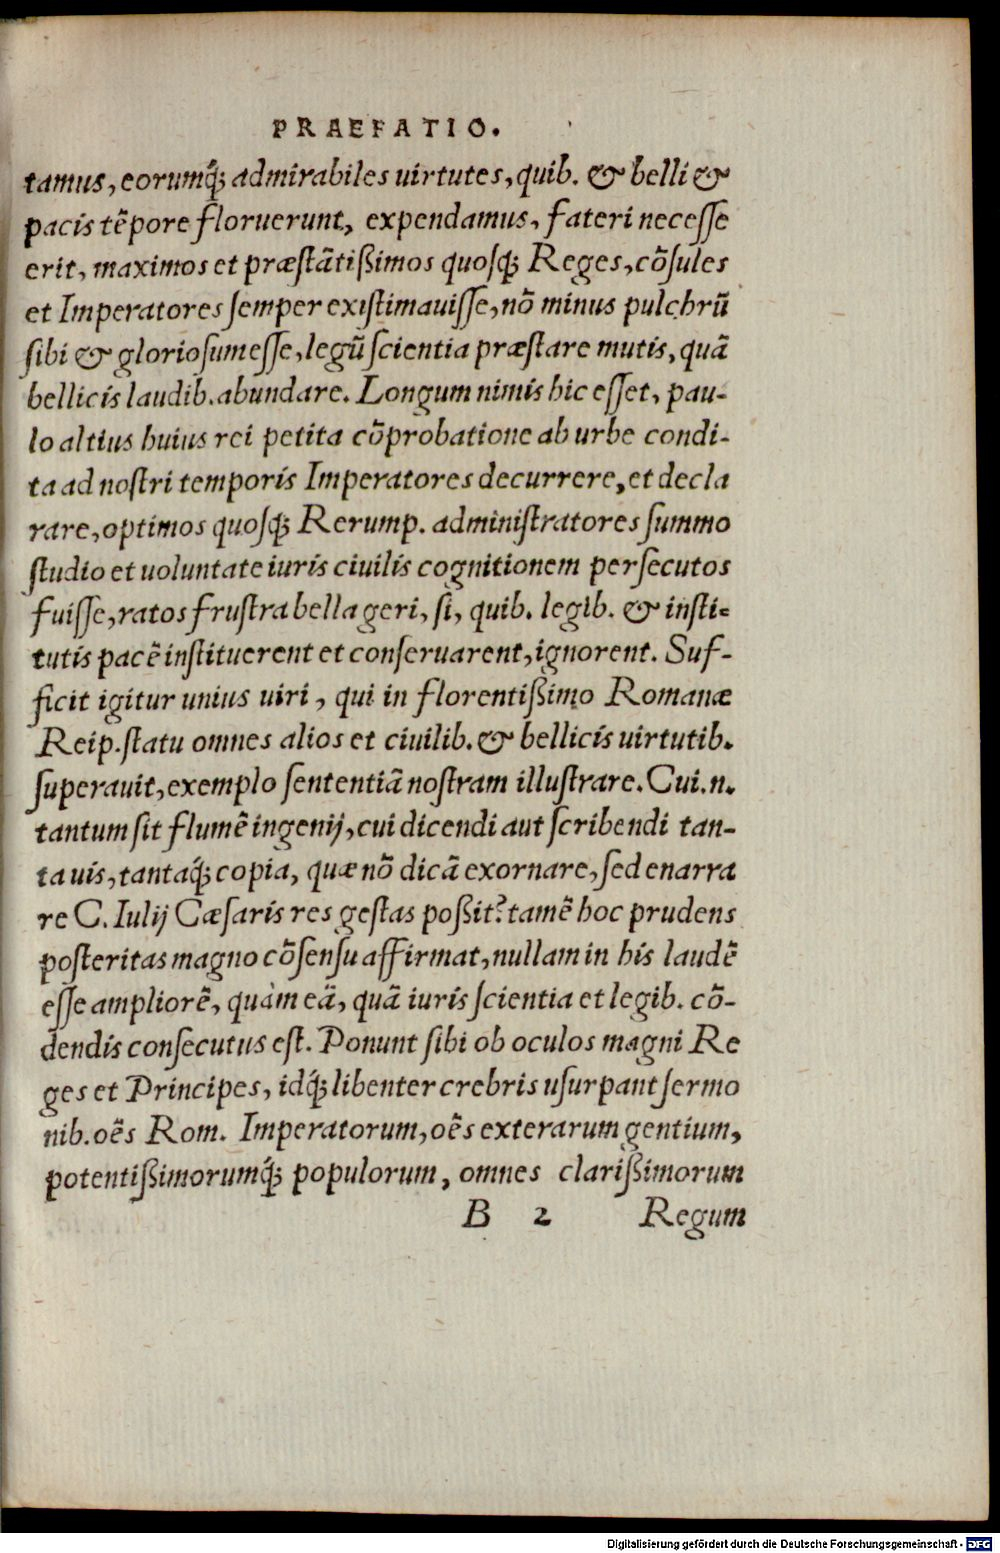 PRAEFATIO.
tamus, eorumq́; admirabiles uirtutes, quib. & belli &
pacis tẽpore floruerunt, expendamus, fateri necesse
erit, maximos et præstãtißimos quosq; Reges, cõsules
et Imperatores semper existimauisse, nõ minus pulchrũ
sibi & gloriosum esse, legũ scientia præstare mutis, quã
bellicis laudib. abundare. Longum nimis hic esset, pau-
lo altius huius rei petita cõprobatione ab urbe condi-
ta ad nostri temporis Imperatores decurrere, et decla
rare, optimos quosq; Rerump. administratores summo
studio et uoluntate iuris ciuilis cognitionem persecutos
fuisse, ratos frustra bella geri, si, quib. legib. & insti-
tutis pacẽ instituerent et conseruarent, ignorent. Suf-
ficit igitur unius uiri, qui in florentißimo Romanæ
Reip. statu omnes alios et ciuilib. & bellicis uirtutib.
superauit, exemplo sententiã nostram illustrare. Cui. n.
tantum sit flumẽ ingenij, cui dicendi aut scribendi tan-
ta uis, tantaq́; copia, quæ nõ dicã exornare, sed enarra
re C. Iulij Cæsaris res gestas poßit? tamẽ hoc prudens
posteritas magno cõsensu affirmat, nullam in his laudẽ
esse ampliorẽ, quàm eã, quã iuris scientia et legib. cõ-
dendis consecutus est. Ponunt sibi ob oculos magni Re
ges et Principes, idq́; libenter crebris usurpant sermo
nib. oẽs Rom. Imperatorum, oẽs exterarum gentium,
potentißimorumq́; populorum, omnes clarißimorum
B 2 Regum
Digitalisierung gefördert durch die Deutsche Forschungsgemeinschaft - DFG